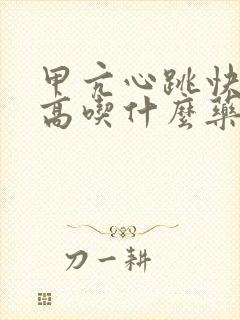 甲亢心跳快
高喫什麼藥
刀一耕